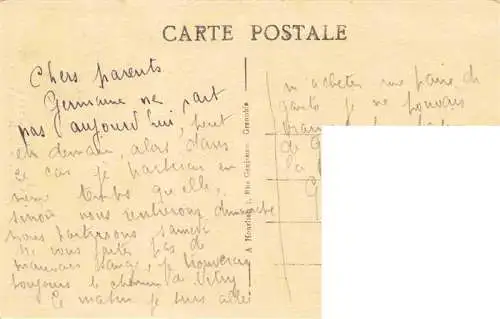 CARTE POSTALE
Chers parents
Germaine ne part
pas aujourd'hui, peut
etre demain, alors dans
ce cas je partirai en
même temps qu'elle,
sinon nous rentrerons dimanche
nous partirons samedi
ne vous faites pas de
mauvais sang, je trouverai
toujours le chemin de Vitry
Ce matin je suis allée
m'acheter une paire de
gants je ne pouvais
de
la